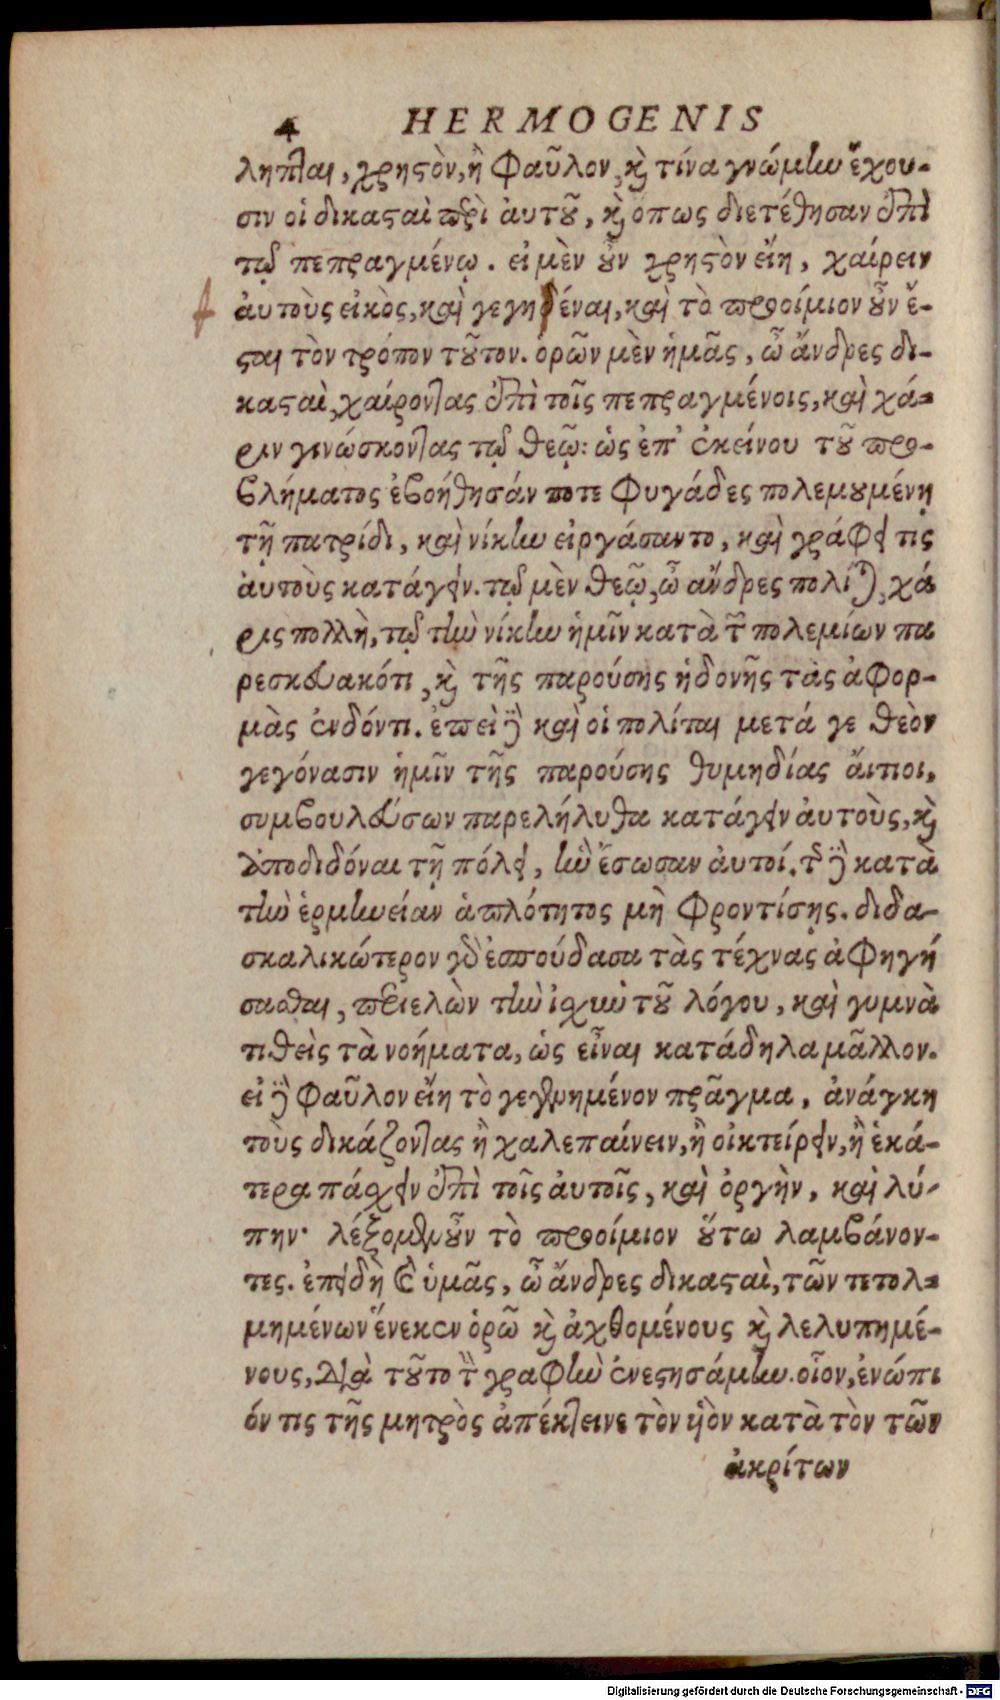 4 HERMOGENIS
ληπται, χρηστὸν, ἢ φαῦλον, καὶ τίνα γνώμην ἔχου-
σιν οἱ δικασταὶ περὶ ἀυτοῦ, καὶ ὁπως διετέθησαν ἐπὶ
τῷ πεπραγμένῳ. εἰ μὲν οὖν χρηστὸν εἴη, χαίρειν
ἀυτοὺς εἰκὸς, καὶ γεγηθέναι, καὶ τὸ προοίμιον οὖν ἔ-
σται τὸν τρόπον τοῦτον. ὁρῶν μὲν ἡμᾶς, ὦ ἄνδρες δι-
κασταὶ, χαίροντας ἐπὶ τοῖς πεπραγμένοις, καὶ χά-
ριν γινώσκοντας τῷ θεῷ: ὡς ἐπ' ἐκείνου τοῦ προ-
βλήματος ἐβοήθησάν ποτε φυγάδες πολεμουμένῃ
τῇ πατρίδι, καὶ νίκην εἰργάσαντο, καὶ γράφει τις
ἀυτοὺς κατάγειν. τῷ μὲν θεῷ, ὦ ἄνδρες πολίται, χά
ρις πολλὴ, τῷ τὴν νίκην ἡμῖν κατὰ τῶν πολεμίων πα
ρεσκευακότι, καὶ τῆς παρούσης ἡδονῆς τὰς ἀφορ-
μὰς ἐνδόντι. ἐπεὶ δὲ καὶ οἱ πολίται μετά γε θεὸν
γεγόνασιν ἡμῖν τῆς παρούσης θυμηδίας ἄιτιοι,
συμβουλεύσων παρελήλυθα κατάγειν ἀυτοὺς, καὶ
ἀποδιδόναι τῇ πόλει, ἣν ἔσωσαν ἀυτοί. τῆς δὲ κατὰ
τὴν ἑρμηνείαν ἁπλότητος μὴ φροντίσῃς. διδα-
σκαλικώτερον γὰρ ἐσπούδασα τὰς τέχνας ἀφηγή
σασθαι, περιελὼν τὴν ἰσχὺν τοῦ λόγου, καὶ γυμνὰ
τιθεὶς τὰ νοήματα, ὡς εἶναι κατάδηλα μᾶλλον.
εἰ δὲ φαῦλον εἴη τὸ γεγενημένον πρᾶγμα, ἀνάγκη
τοὺς δικάζοντας ἢ χαλεπαίνειν, ἢ οἰκτείρειν, ἢ ἑκά-
τερα πάσχειν ἐπὶ τοῖς ἀυτοῖς, καὶ ὀργὴν, καὶ λύ-
πην· λέξομεν οὖν τὸ προοίμιον οὕτω λαμβάνον-
τες. ἐπειδὴ καὶ ὑμᾶς, ὦ ἄνδρες δικασταὶ, τῶν τετολ-
μημένων ἕνεκεν ὁρῶ καὶ ἀχθομένους καὶ λελυπημέ-
νους, διὰ τοῦτο τὴν γραφὴν ἐνεστησάμην. οἷον, ἐνώπι
όν τις τῆς μητρὸς ἀπέκτεινε τὸν υἱὸν κατὰ τὸν τῶν
ἀκρίτων
Digitalisierung gefördert durch die Deutsche Forschungsgemeinschaft - DFG